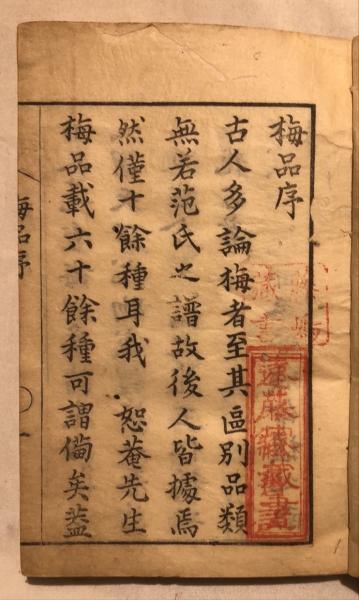 梅品序
古人多論梅者至其區別品類
無若范氏之譜故後人皆據焉
然僅十餘種耳我 恕菴先生
梅品載六十餘種可謂備矣蓋
梅品序
一